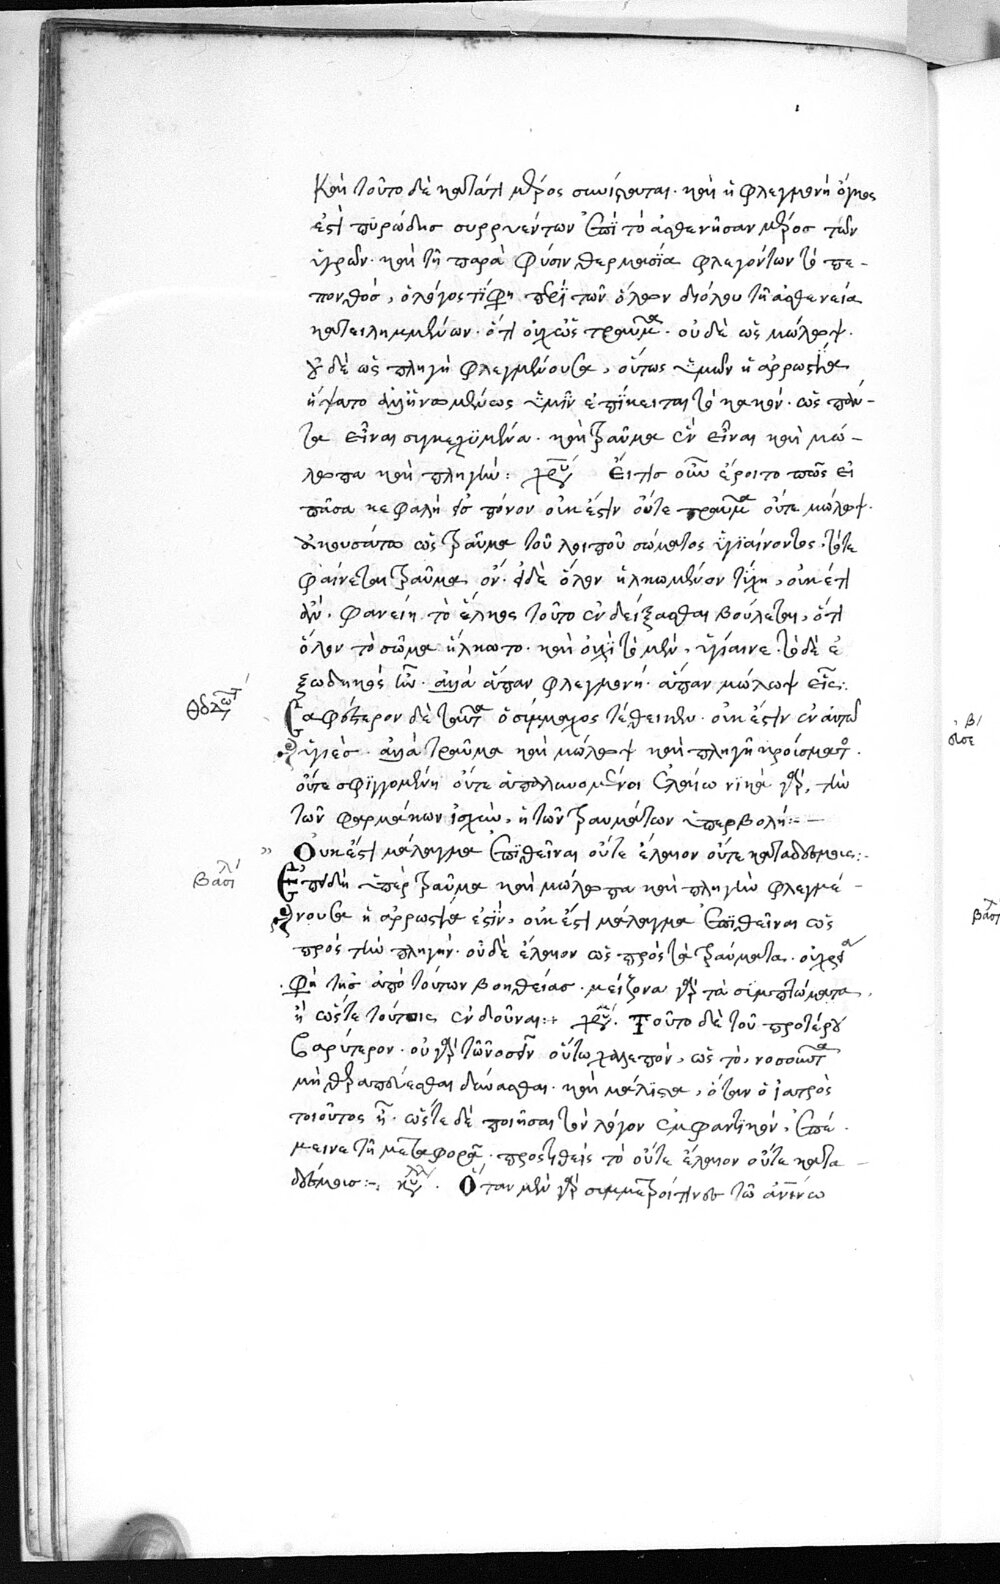 καὶ τοῦτο δὲ κατά τι μέρος συνίσταται· καὶ ἡ φλεγμονὴ ὄγκος
ἐστὶ πυρώδης συρρυέντων ἐπὶ τὸ ἀσθενῆσαν μέρος τῶν
ὑγρῶν· καὶ τῇ παρὰ φύσιν θερμασίᾳ φλεγόντων τὸ πε-
πονθός, ὁ λόγος περὶ τῶν ὅλων διόλου τῇ ἀσθενείᾳ
κατειλημμένων· ὅτι οὐχ ὡς τραῦμα· οὐδὲ ὡς μώλωψ·
οὐδὲ ὡς πληγὴ φλεγμαίνουσα, οὕτως ὑμῶν ἡ ἀρρωστία
ἥψατο ἀλλ' ὑμῖν ἐπίκειται τὸ κακόν· ὡς πάν-
τα εἶναι συγκεχυμένα· καὶ τραῦμα ἓν εἶναι καὶ μώ-
λωπα καὶ πληγήν: Εἴ τις οὖν ἔροιτο πῶς εἰ
πᾶσα κεφαλὴ εἰς πόνον οὐκ ἔστιν οὔτε τραῦμα οὔτε μώλωψ·
ἀκουσάτω ὡς τραῦμα τοῦ λοιποῦ σώματος ὑγιαίνοντος, τότε
φαίνεται τραῦμα ὄν· εἰ δὲ ὅλον ἡλκωμένον τύχῃ, οὐκέτι
ἂν φανείη τὸ ἕλκος τοῦτο ἐνδείξασθαι βούλεται, ὅτι
ὅλον τὸ σῶμα ἥλκωτο· καὶ οὐχὶ τὸ μὲν, ὑγίαινε τὸ δὲ ἐ
ξωδηκὸς ἦν· ἀλλὰ ἅπαν φλεγμονὴ· ἅπαν μώλωψ εἷς:
Σαφέστερον δὲ ταῦτα ὁ σύμμαχος τέθεικεν· οὐκ ἔστιν ἐν αὐτῷ
ὑγιὲς ἀλλὰ τραῦμα καὶ μώλωψ καὶ πληγὴ κρούσματος
οὔτε σφιγγομένη οὔτε ἁπαλυνομένη ἐλαίῳ νικᾷ γάρ, τὴν
τῶν φαρμάκων ἰσχὺν, ἡ τῶν τραυμάτων ὑπερβολή:—
Οὐκ ἔστι μάλαγμα ἐπιθεῖναι οὔτε ἔλαιον οὔτε καταδέσμους:
βασιλ
Ἐπειδὴ ὑπὲρ τραῦμα καὶ μώλωπα καὶ πληγὴν φλεγμαί-
νουσα ἡ ἀρρωστία ἐστὶν, οὐκ ἔστι μάλαγμα ἐπιθεῖναι ὡς
πρὸς τὴν πληγήν· οὐδὲ ἔλαιον ὡς πρὸς τὰ τραύματα·
τῆς ἀπὸ τούτων βοηθείας· μείζονα γὰρ τὰ συμπτώματα
ἢ ὥστε τούτοις ἐνδοῦναι: Τοῦτο δὲ τοῦ προτέρου
βαρύτερον· οὐ γὰρ τὸ νοσεῖν οὕτω χαλεπόν, ὡς τὸ, νοσοῦντα
μὴ θεραπεύεσθαι δύνασθαι· καὶ μάλιστα, ὅταν ὁ ἰατρὸς
τοιοῦτος ᾖ· ὥστε δὲ ποιῆσαι τὸν λόγον ἐμφαντικόν, ἐπέ
μεινε τῇ μεταφορᾷ· προστιθεὶς τὸ οὔτε ἔλαιον οὔτε κατα
δέσμους: Ὅταν μὲν γὰρ